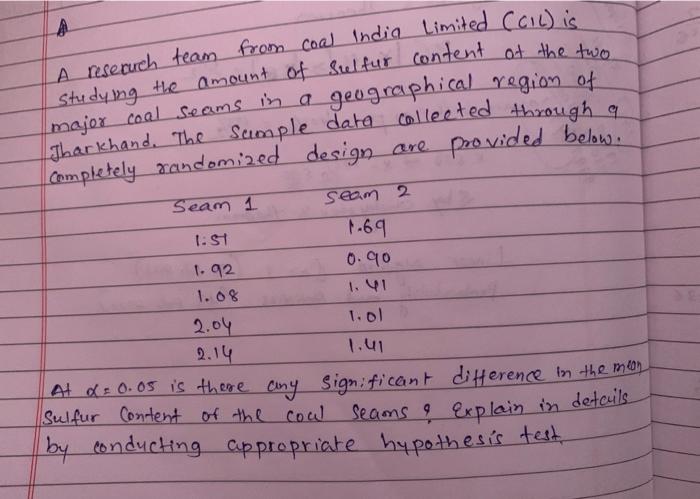 A
A research team from coal India Limited (CIL) is
studying the amount of Sulfur content of the two
major coal seams in a geographical region of
Jharkhand. The Sample data collected through a
completely randomized design are provided below.
Seam 1 Seam 2
1.51 1.69
1.92 0.90
1.08 1.41
2.04 1.01
2.14 1.41
At α = 0.05 is there any significant difference in the mean
sulfur Content of the coal Seams ? Explain in details
by conducting appropriate hypothesis test.